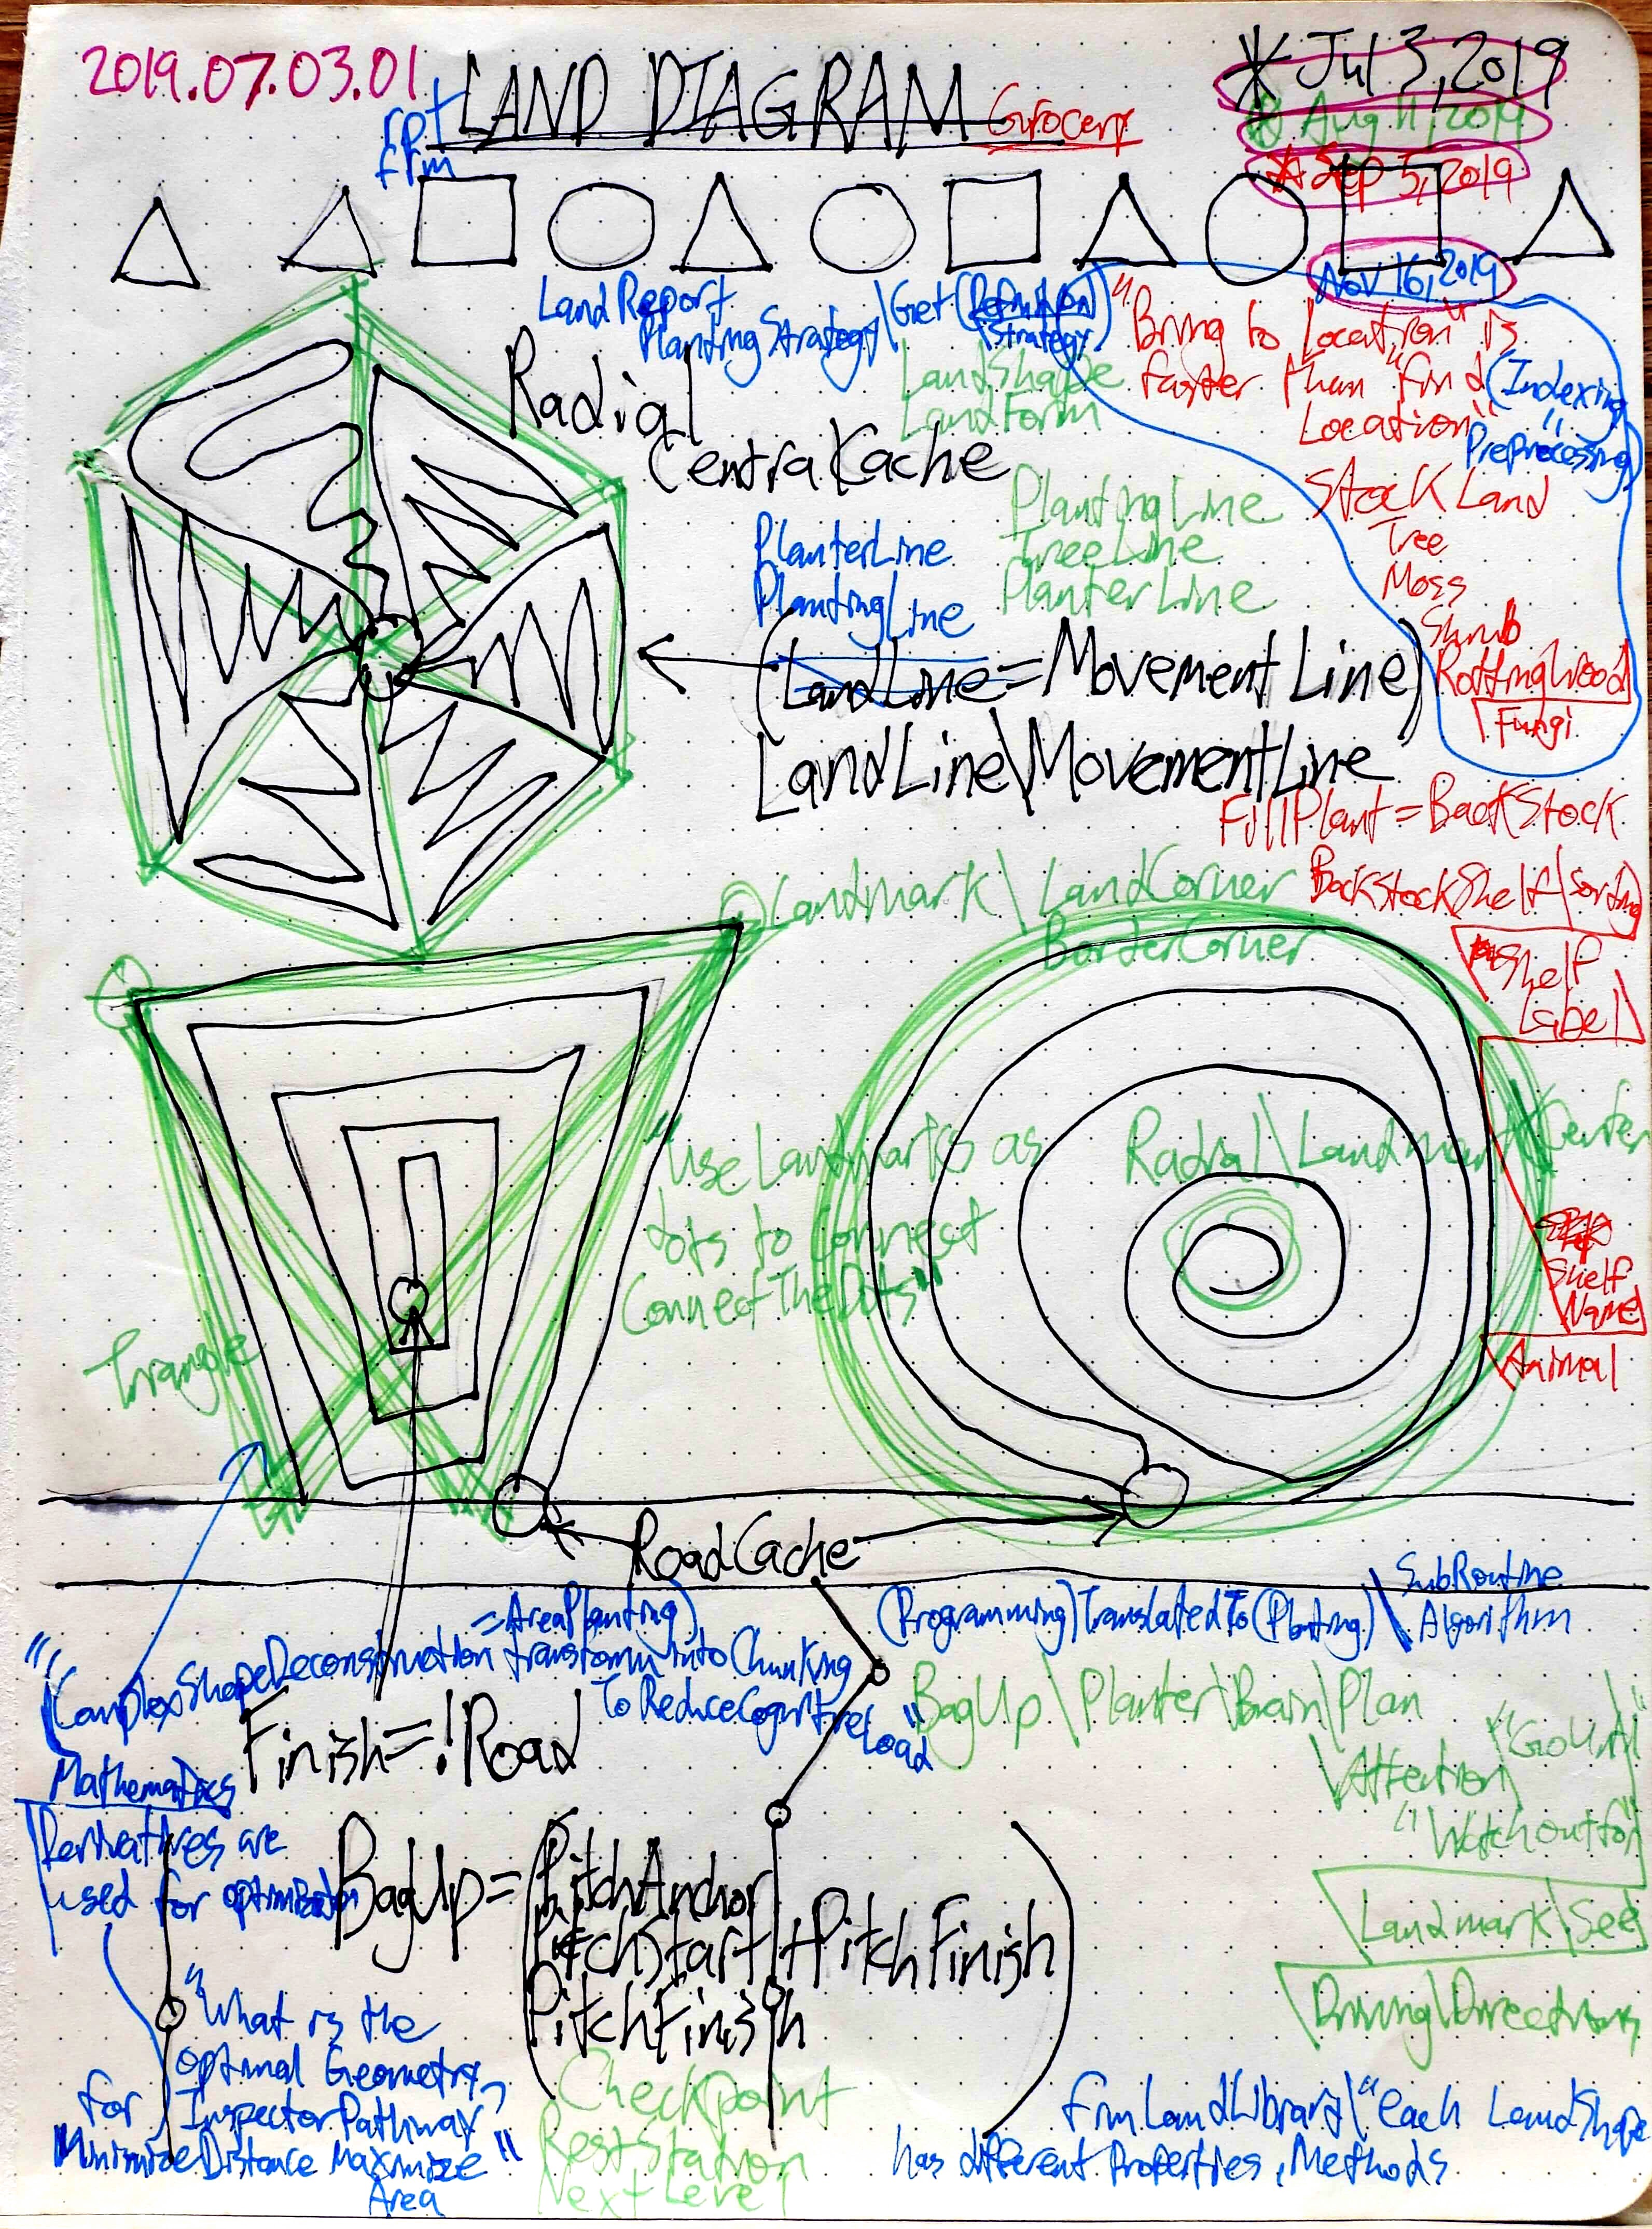 2019.07.03.01
LAND DIAGRAM
Grocery
rpt
frm
Jul 3, 2019
Aug 11, 2019
Sep 5, 2019
Nov 16, 2019
Land Report
Planting Strategy\Get(
Strategy)
LandShape
LandForm
"Bring to Location" is
faster than "find
Location"
(Indexing
Preprocessing)
Radial
CentralCache
PlantingLine
TreeLine
PlanterLine
PlanterLine
PlantingLine
Stock Land
Tree
Moss
Shrub
RottingWood
Fungi
(LandLine=Movement Line)
LandLine\MovementLine
FillPlant=BackStock
BackStockShelf\Sorting
Shelf
Label
Landmark\LandCorner
BorderCorner
"Use Landmarks as
dots to connect
ConnectTheDots"
Radial\Landmark\Center
Shelf
Name
Animal
Triangle
RoadCache
=AreaPlanting)
"ComplexShapeDeconstruction transform into Chunking
To ReduceCognitiveLoad"
(Programming)TranslatedTo(Planting)\SubRoutine
Algorithm
Finish=!Road
BagUp\Planter\Brain\Plan
\Attention
"Go Until"
"Watch out for"
Landmark\See
Driving\Directions
Mathematics
Derivatives are
used for optimization
BagUp=(PitchAnchor
PitchStart+PitchFinish
PitchFinish)
"What is the
optimal Geometry
for InspectorPathway
Minimize Distance Maximize
Area"
Checkpoint
RestStation
NextLevel
frm LandLibrary\"each LandShape
has different Properties, Methods